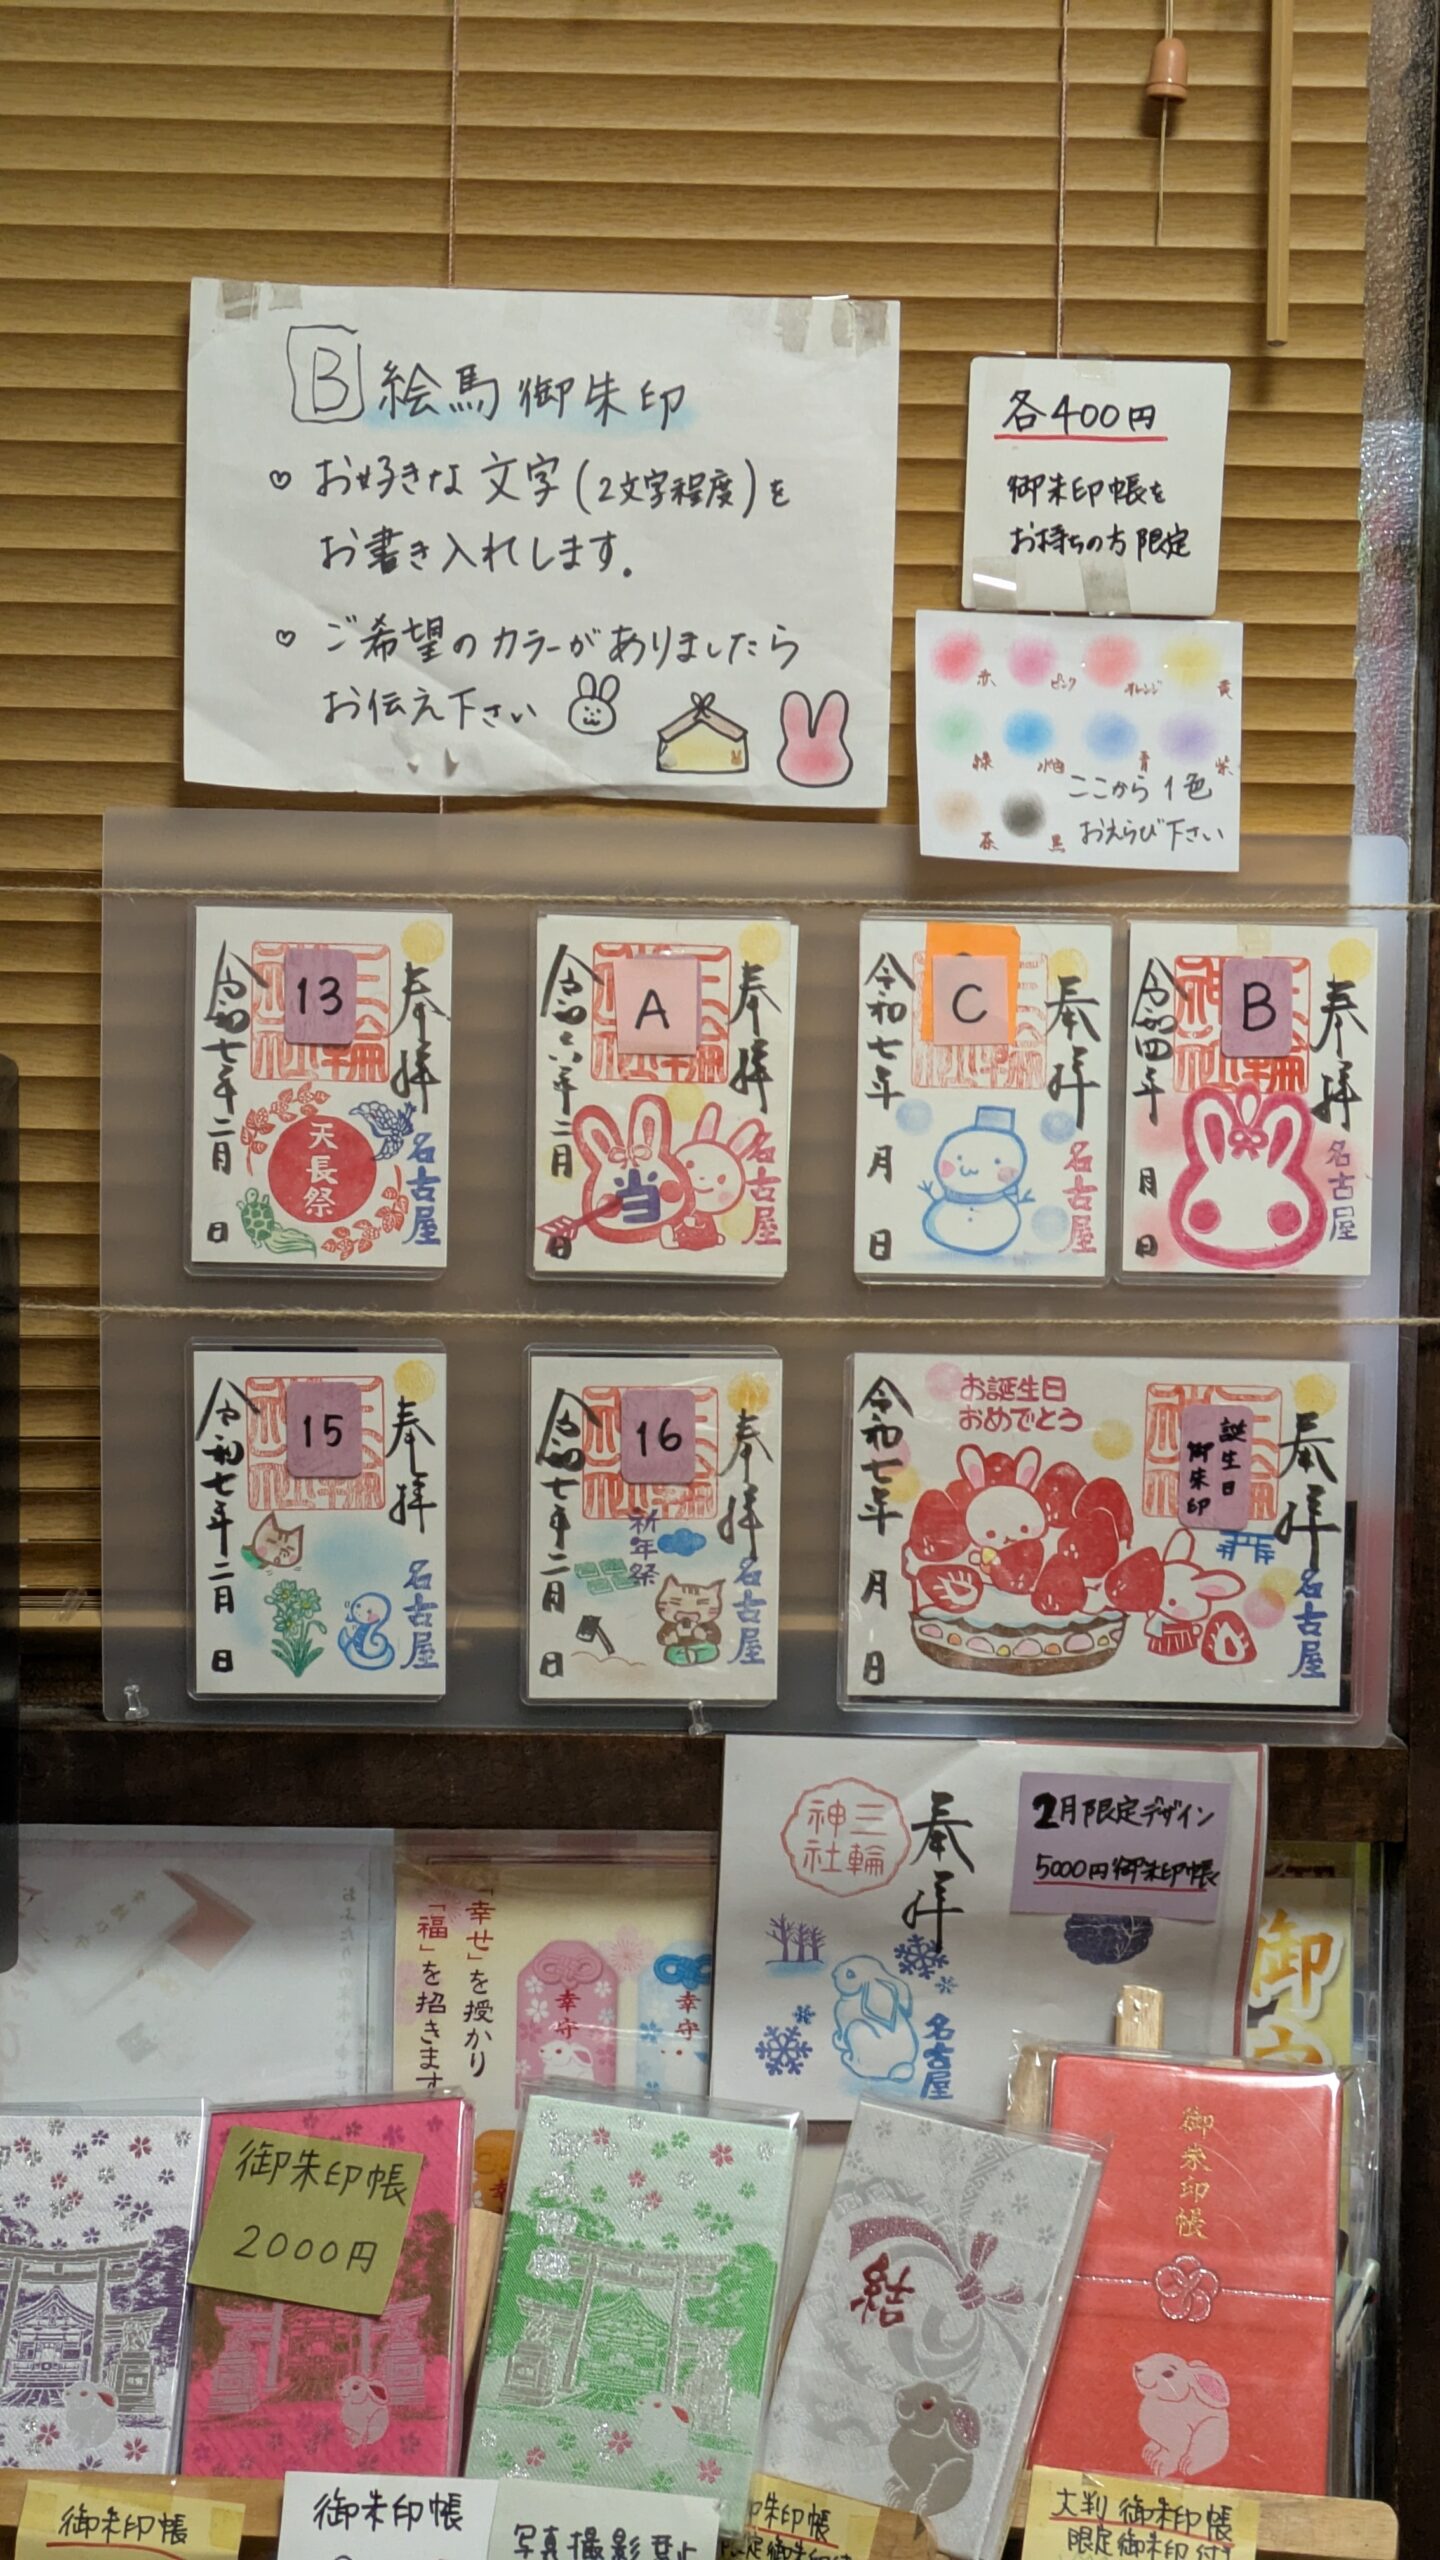 B 絵馬御朱印
♡ お好きな文字(2文字程度)を
お書き入れします。
♡ ご希望のカラーがありましたら
お伝え下さい
各400円
御朱印帳を
お持ちの方限定
赤 ピンク オレンジ 黄
緑 水色 青 紫
茶 黒
ここから1色
おえらび下さい
13
奉拝
名古屋
天長祭
令和七年二月 日
A
奉拝
名古屋
当
令和六年二月 日
C
奉拝
名古屋
令和七年 月 日
B
奉拝
名古屋
令和四年 月 日
15
奉拝
名古屋
令和七年二月 日
16
奉拝
名古屋
祈年祭
令和七年二月 日
誕生日
御朱印
奉拝
名古屋
お誕生日
おめでとう
令和七年 月 日
2月限定デザイン
5000円御朱印帳
奉拝
三輪
神社
名古屋
「幸せ」を授かり
「福」を招きます
幸守
幸守
御
御朱印帳
2000円
結
御朱印帳
御朱印帳
御朱印帳
写真撮影禁止
大判御朱印帳
限定御朱印付